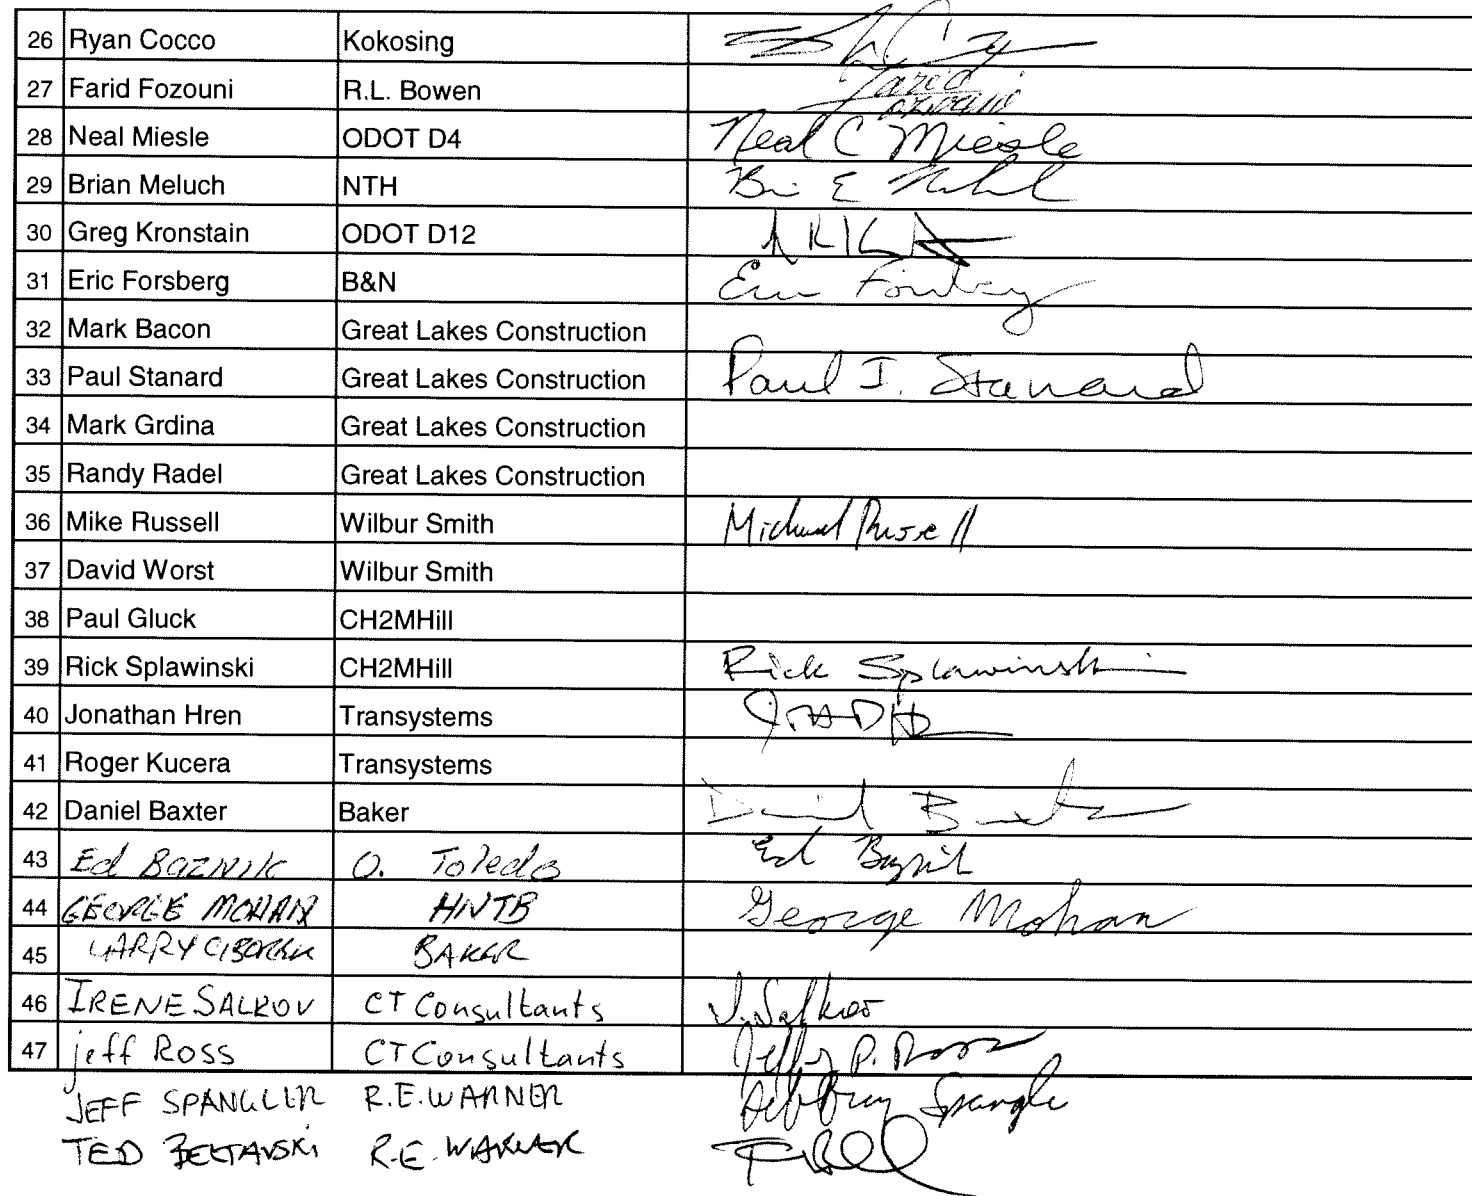 26 Ryan Cocco Kokosing
27 Farid Fozouni R.L. Bowen Farid Fozouni
28 Neal Miesle ODOT D4 Neal C Miesle
29 Brian Meluch NTH
30 Greg Kronstain ODOT D12
31 Eric Forsberg B&N Eric
32 Mark Bacon Great Lakes Construction
33 Paul Stanard Great Lakes Construction Paul I. Stanard
34 Mark Grdina Great Lakes Construction
35 Randy Radel Great Lakes Construction
36 Mike Russell Wilbur Smith Michael Russell
37 David Worst Wilbur Smith
38 Paul Gluck CH2MHill
39 Rick Splawinski CH2MHill Rick Splawinski
40 Jonathan Hren Transystems
41 Roger Kucera Transystems
42 Daniel Baxter Baker Daniel Baxter
43 Ed Baznik O. Toledo Ed Baznik
44 GEORGE MOHAN HNTB George Mohan
45 LARRY BAKER
46 IRENE SALKOV CT Consultants I. Salkov
47 jeff Ross CT Consultants Jeffrey P. Ross
JEFF SPANGLER R.E. WARNER Jeffrey Spangler
TED R.E. WARNER